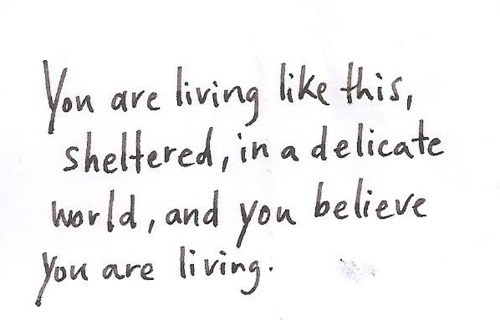 You are living like this,
sheltered, in a delicate
world, and you believe
you are living.